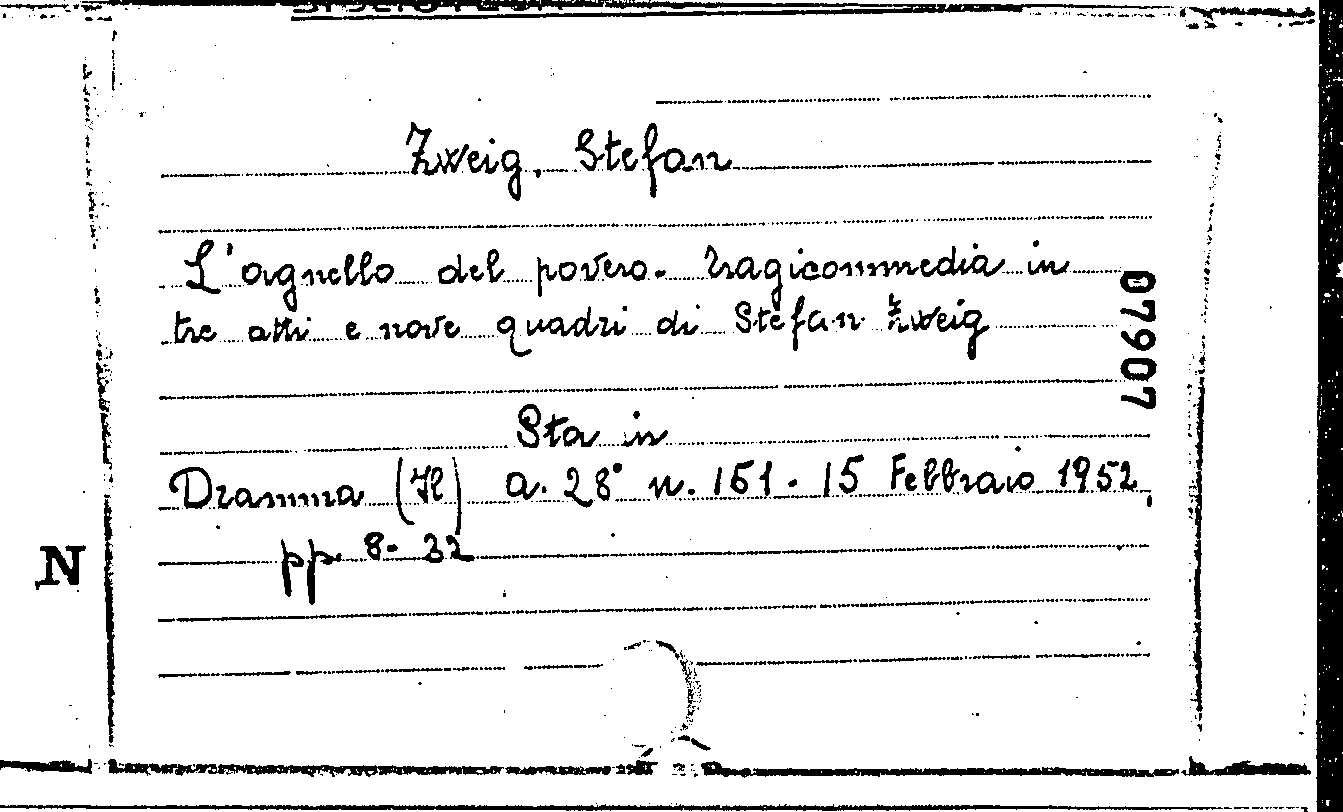 Zweig, Stefan
L'agnello del povero. Tragicommedia in
tre atti e nove quadri di Stefan Zweig
Sta in
Dramma (Il) a. 28° n. 151. 15 Febbraio 1952,
pp. 8-32
07907
N